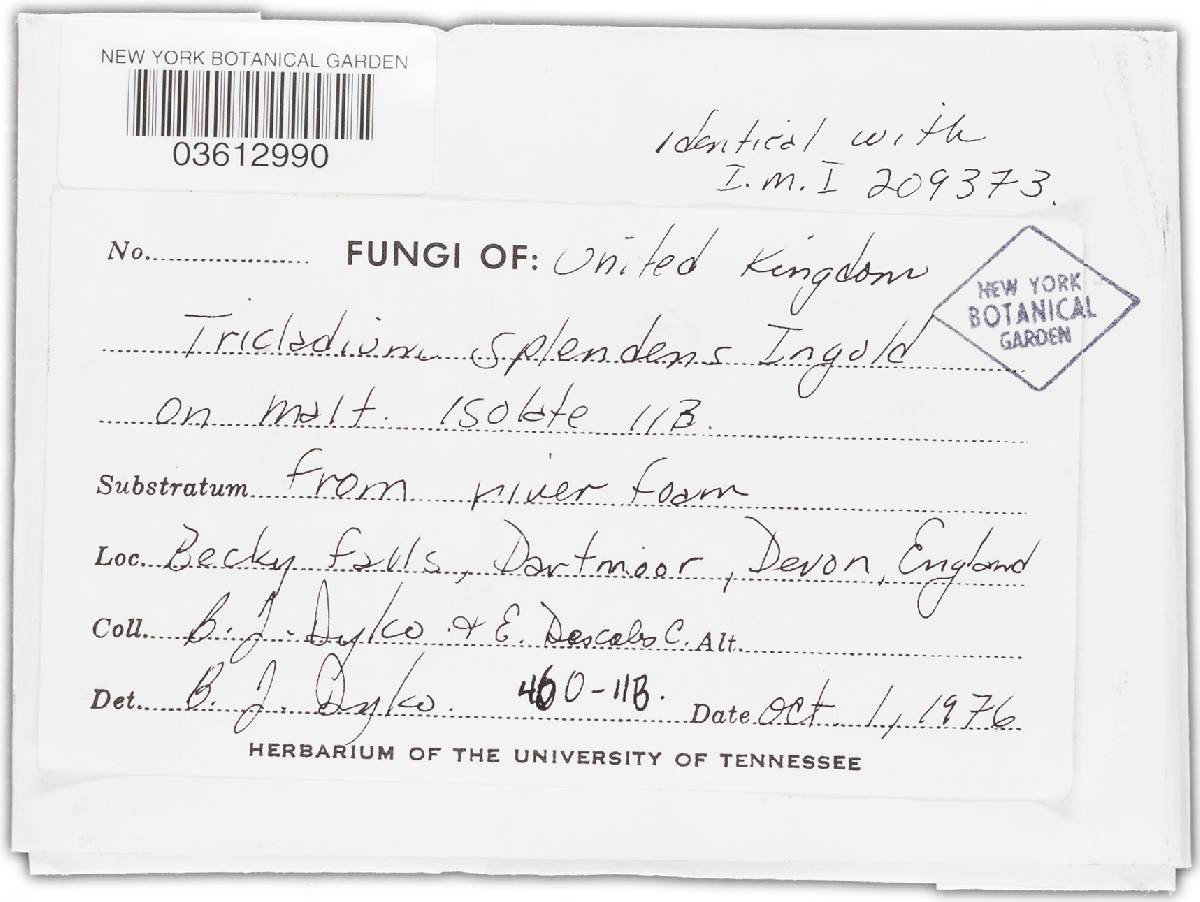 NEW YORK BOTANICAL GARDEN
03612990
Identical with
I.M.I 209373.
No. FUNGI OF: United Kingdom
NEW YORK
BOTANICAL
GARDEN
Tricladium splendens Ingold
on malt. Isolate 11B.
Substratum from river foam
Loc. Becky Falls, Dartmoor, Devon, England
Coll. B. J. Dyko & E. Descals C. Alt.
Det. B. J. Dyko. 460-11B. Date Oct. 1, 1976
HERBARIUM OF THE UNIVERSITY OF TENNESSEE